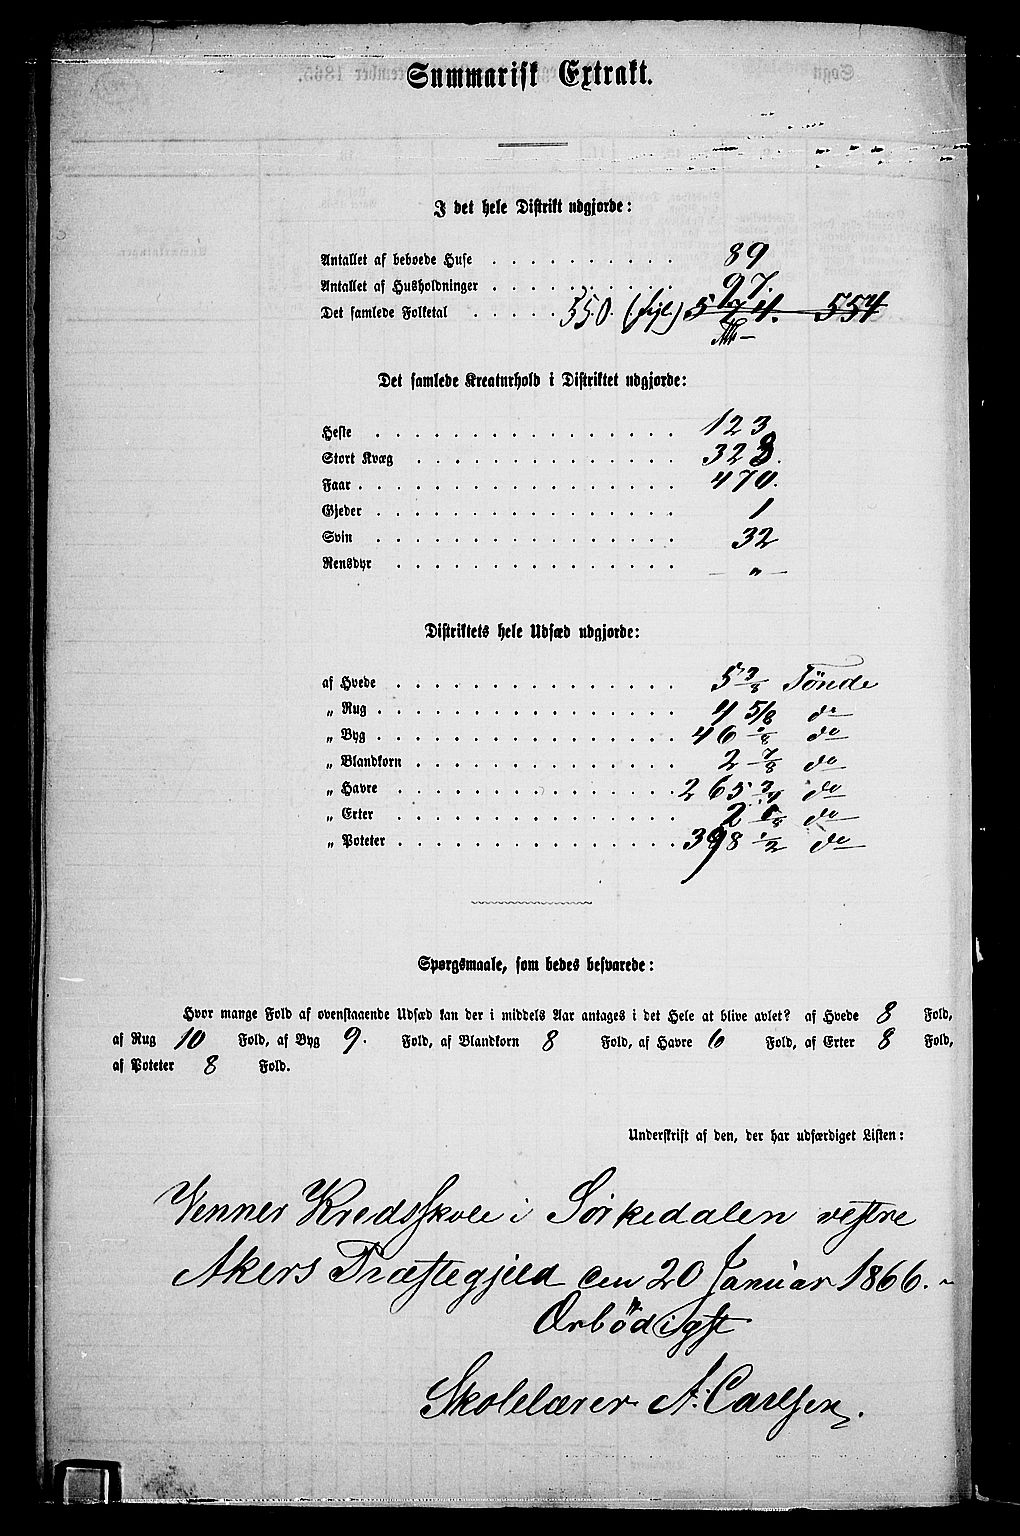 Summarisk Extrakt.
I det hele Distrikt udgjorde:
Antallet af beboede Huse . . . . . . . . . . 89
Antallet af Husholdninger . . . . . . . . . . 97.
Det samlede Folketal . . . . . 550. (fejl.) 574. 554
Det samlede Kreaturhold i Distriktet udgjorde:
Heste . . . . . . . . . . . . . . . . 123
Stort Kvæg . . . . . . . . . . . . . . 328.
Faar . . . . . . . . . . . . . . . . . 470.
Gjeder . . . . . . . . . . . . . . . . 1
Svin . . . . . . . . . . . . . . . . 32
Rensdyr . . . . . . . . . . . . . . . — „ —
Distriktets hele Udsæd udgjorde:
af Hvede . . . . . . . . . . . . . . . 5 3/8 Tönde
„ Rug . . . . . . . . . . . . . . . . 4 5/8 do
„ Byg . . . . . . . . . . . . . . . . 46 /8 do
„ Blandkorn . . . . . . . . . . . . . . 2 7/8 do
„ Havre . . . . . . . . . . . . . . . 265 3/4 do
„ Erter . . . . . . . . . . . . . . . 2 /8 do
„ Poteter . . . . . . . . . . . . . . . 398 1/2 do
Spørgsmaale, som bedes besvarede:
Hvor mange Fold af ovenstaaende Udsæd kan der i middels Aar antages i det Hele at blive avlet? af Hvede 8 Fold,
af Rug 10 Fold, af Byg 9. Fold, af Blandkorn 8 Fold, af Havre 6 Fold, af Erter 8 Fold,
af Poteter 8 Fold.
Underskrift af den, der har udfærdiget Listen:
Venner Kredsskole i Sörkedalen vestre
Akers Præstegjeld den 20 Januar 1866.
Ærbödigst
Skolelærer A. Carlsen.